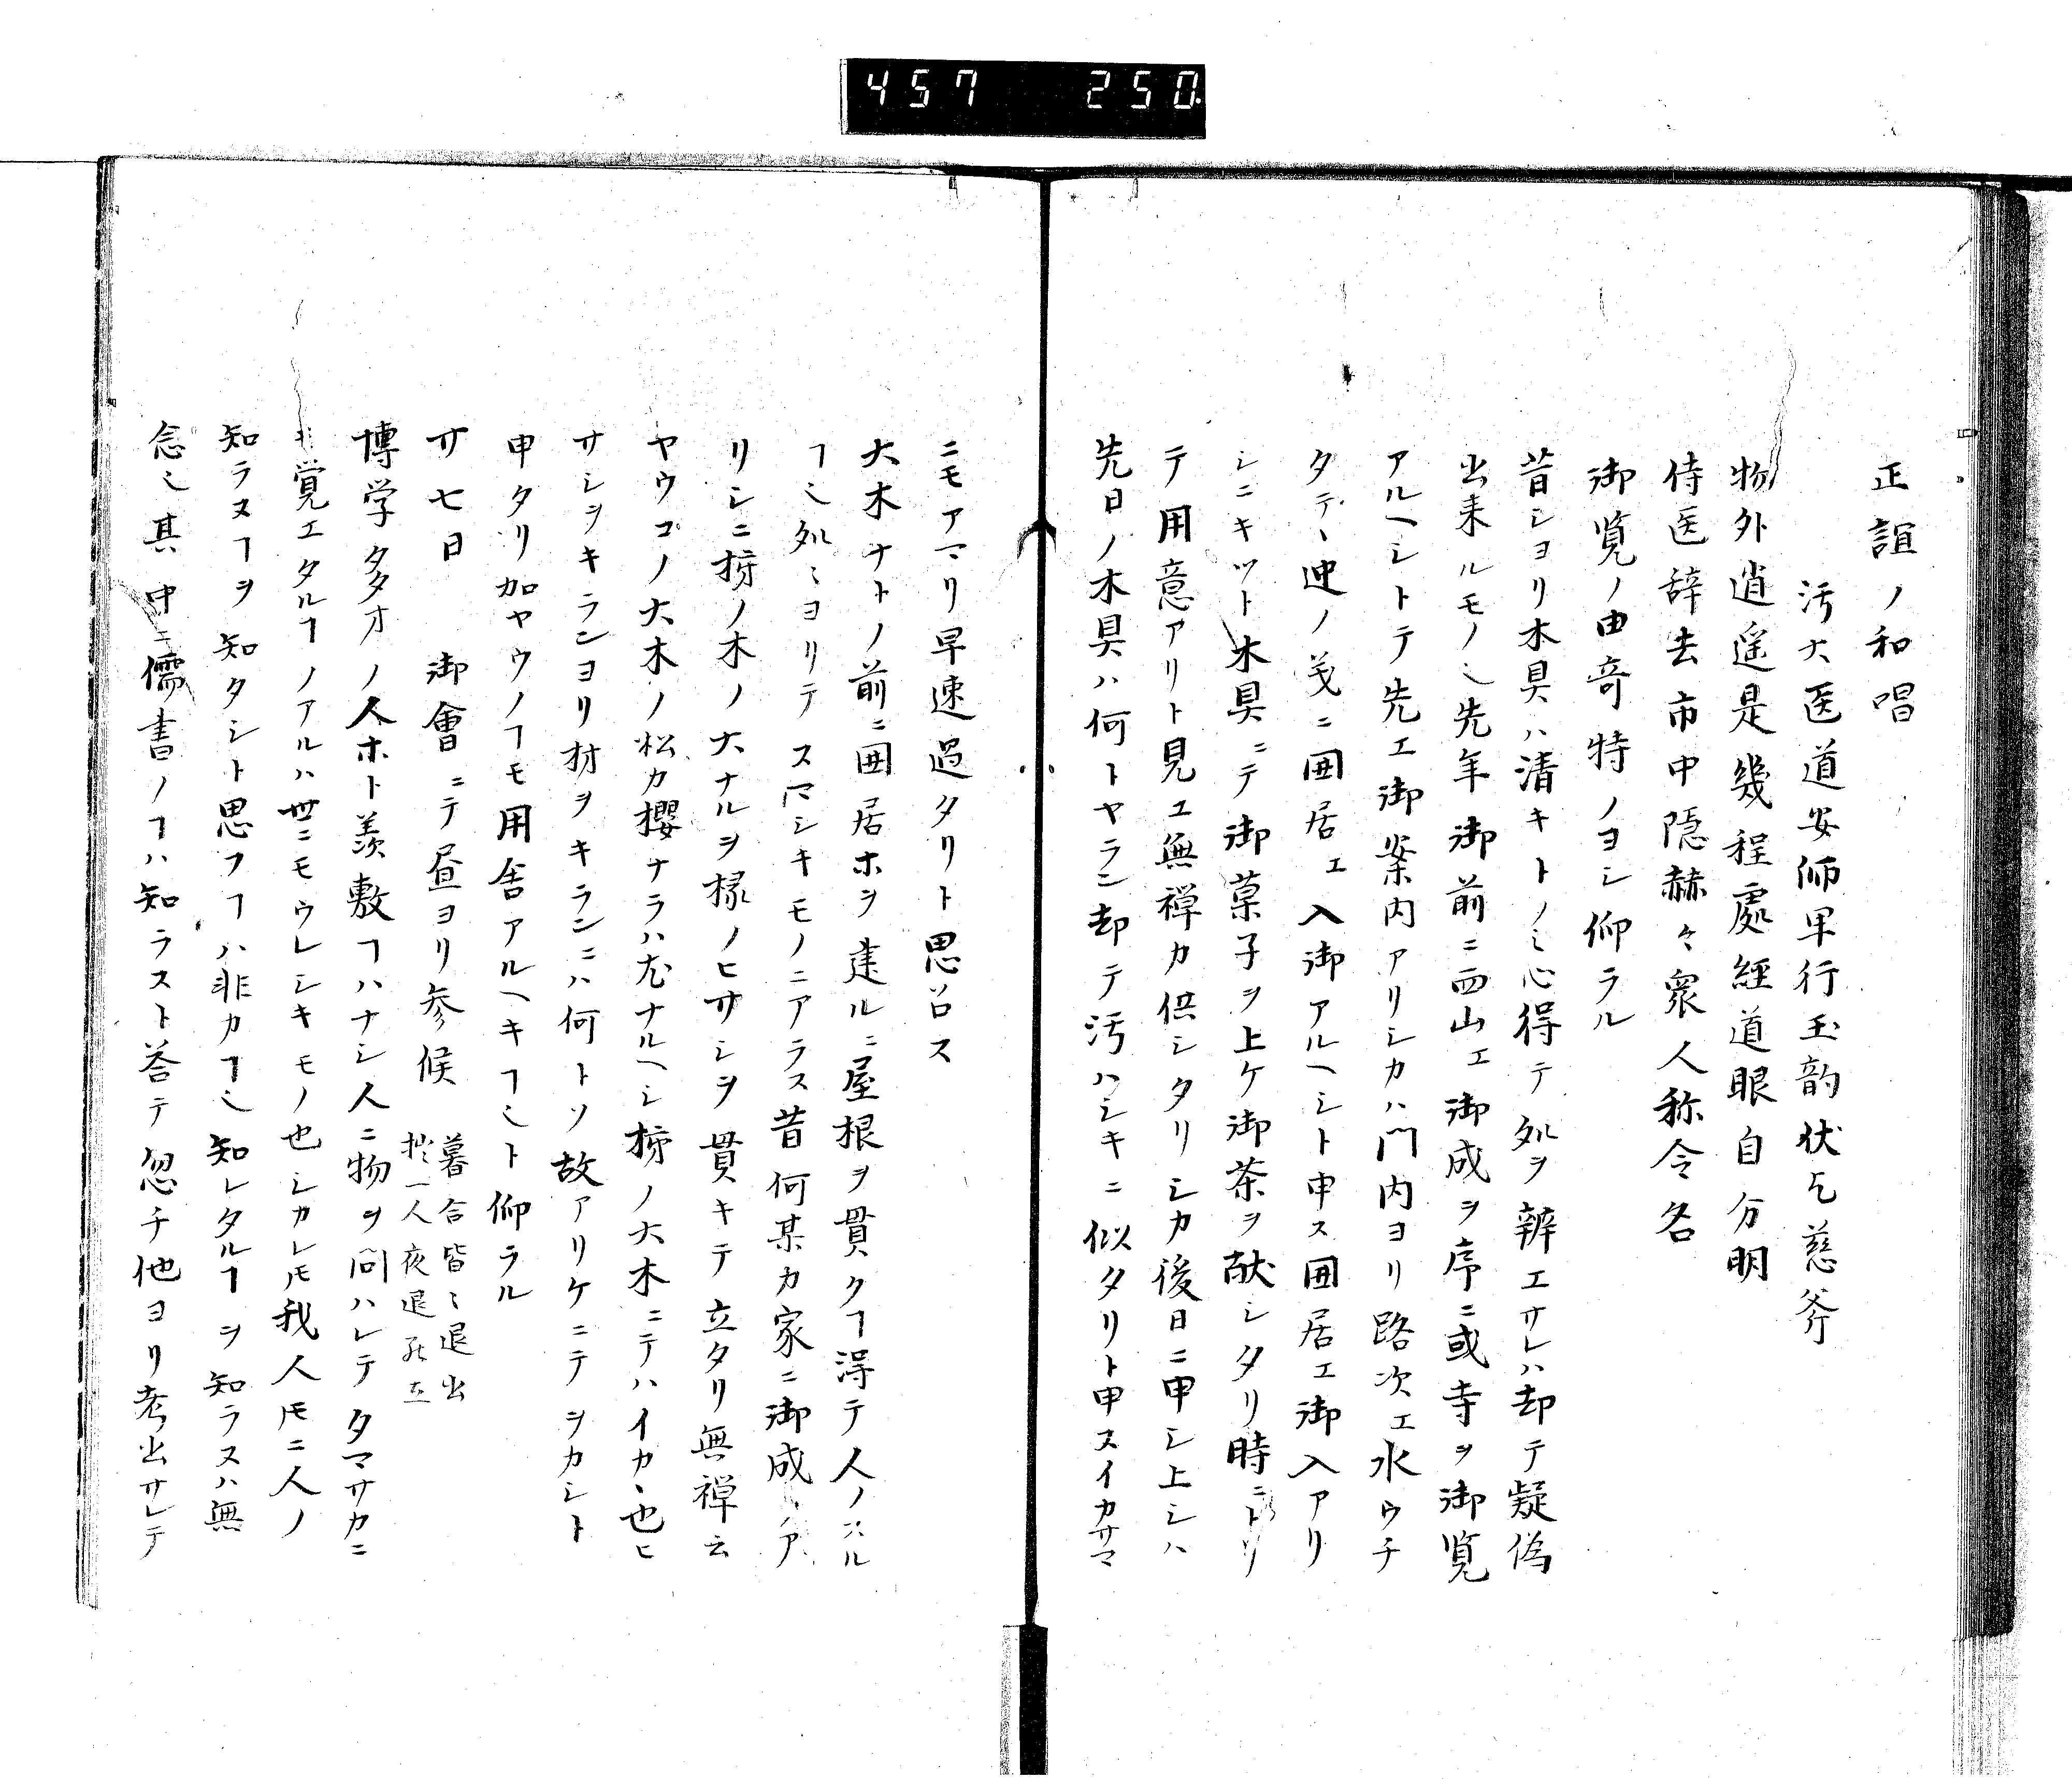 457 250
正誼ノ和唱
汚大医道安師早行玉韵伏乞慈斧
物外逍遥是幾程處経道眼自分明
侍医辞去市中隠赫々衆人称令名
御覧ノ由奇特ノヨシ仰ラル
昔シヨリ木具ハ清キトノミ心得テ処ヲ辨エサレハ却テ疑偽
出来ルモノ也先年御前ニ西山エ御成ヲ序ニ或寺ヲ御覧
アルヘシトテ先エ御案内アリシカハ門内ヨリ路次エ水ウチ
タテ丶迎ノ義ニ囲居エ入御アルヘシト申ス囲居エ御入アリ
シニキット木具ニテ御菓子ヲ上ケ御茶ヲ献シタリ時ニトリ
テ用意アリト見エ無禅カ供シタリシカ後日ニ申シ上シハ
先日ノ木具ハ何トヤラン却テ汚ハシキニ似タリト申スイカサマ
ニモアマリ早速過タリト思召ス
大木ナトノ前ニ囲居ホヲ建ルニ屋根ヲ貫クヿ得テ人ノスル
ヿ也処ニヨリテスマシキモノニアラス昔何某カ家ニ御成ノア
リシニ栃ノ木ノ大ナルヲ椽ノヒサシヲ貫キテ立タリ無禅云
ヤウコノ大木ノ松カ櫻ナラハ尤ナルヘシ栃ノ大木ニテハイカ丶也ヒ
サシヲキランヨリ材ヲキランニハ何トソ故アリケニテヲカシト
申タリ加ヤウノヿモ用舎アルヘキヿ也ト仰ラル
廿七日 御會ニテ昼ヨリ参候 暮合皆ミ退出
拙一人夜退
博学多才ノ人ホト羨敷ヿハナシ人ニ物ヲ問ハレテタマサカニ
モ覚エタルヿノアルハ世ニモウレシキモノ也シカレ𪜈我人𪜈ニ人ノ
知ラヌヿヲ知タシト思フヿハ非カヿ也知レタルヿヲ知ラヌハ無
念也其中ニ儒書ノヿハ知ラスト荅テ忽チ他ヨリ考出サレテ